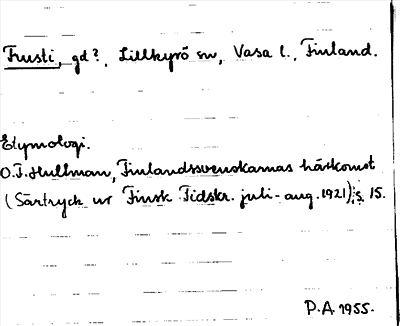 Frusti, gd?, Lillkyrö sn, Vasa l., Finland.
Etymologi.
O.F. Hultman, Finlandssvenskarnas härkomst
(Särtryck ur Finsk Tidskr. juli-aug. 1921), s. 15.
P.A. 1955.